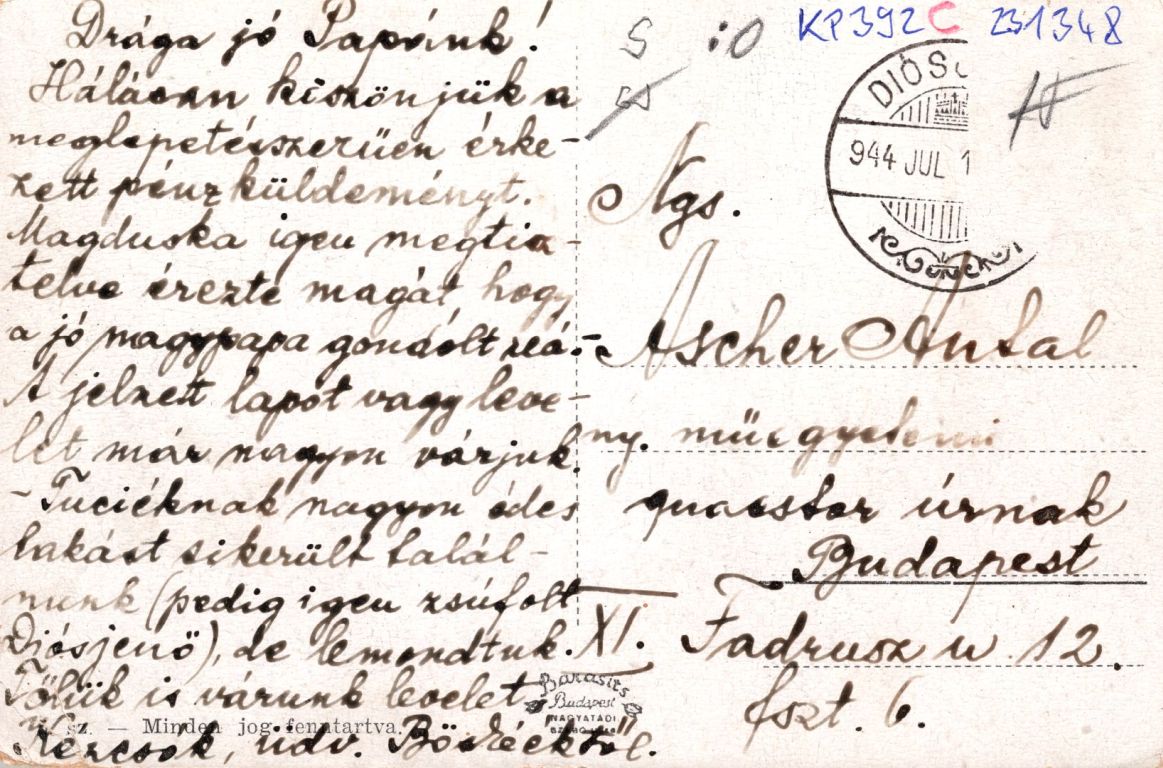 Drága jó Papánk!
Hálásan köszönjük a
meglepetésszerűen érke-
zett pénzküldeményt.
Magduska igen megtisz-
telve érezte magát, hogy
a jó nagypapa gondolt reá.-
A jelzett lapot vagy leve-
let már nagyon várjuk.
- Tuciéknak nagyon édes
lakást sikerült talál-
nunk (pedig igen zsúfolt
Diósjenő), de lemondtuk.
Tőlük is várunk levelet.
sz. — Minden jog fenntartva.
üdv.
KP392C 231348
DIÓS
944 JUL 1
Ngs.
Ascher Antal
ny. műegyetemi
quaestor úrnak
Budapest
XI. Fadrusz u 12.
fszt. 6.
Barasits
Budapest
NAGYATÁDI